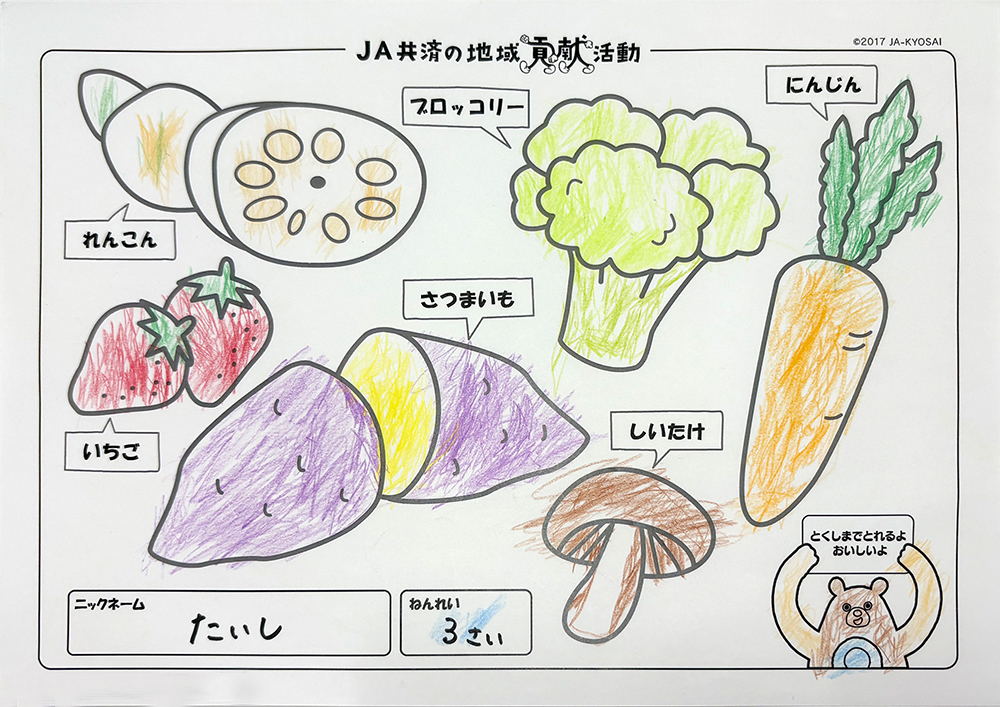 ©2017 JA-KYOSAI
JA共済の地域貢献活動
ブロッコリー
にんじん
れんこん
さつまいも
いちご
しいたけ
とくしまでとれるよ
おいしいよ
ニックネーム
たいし
ねんれい
3さい